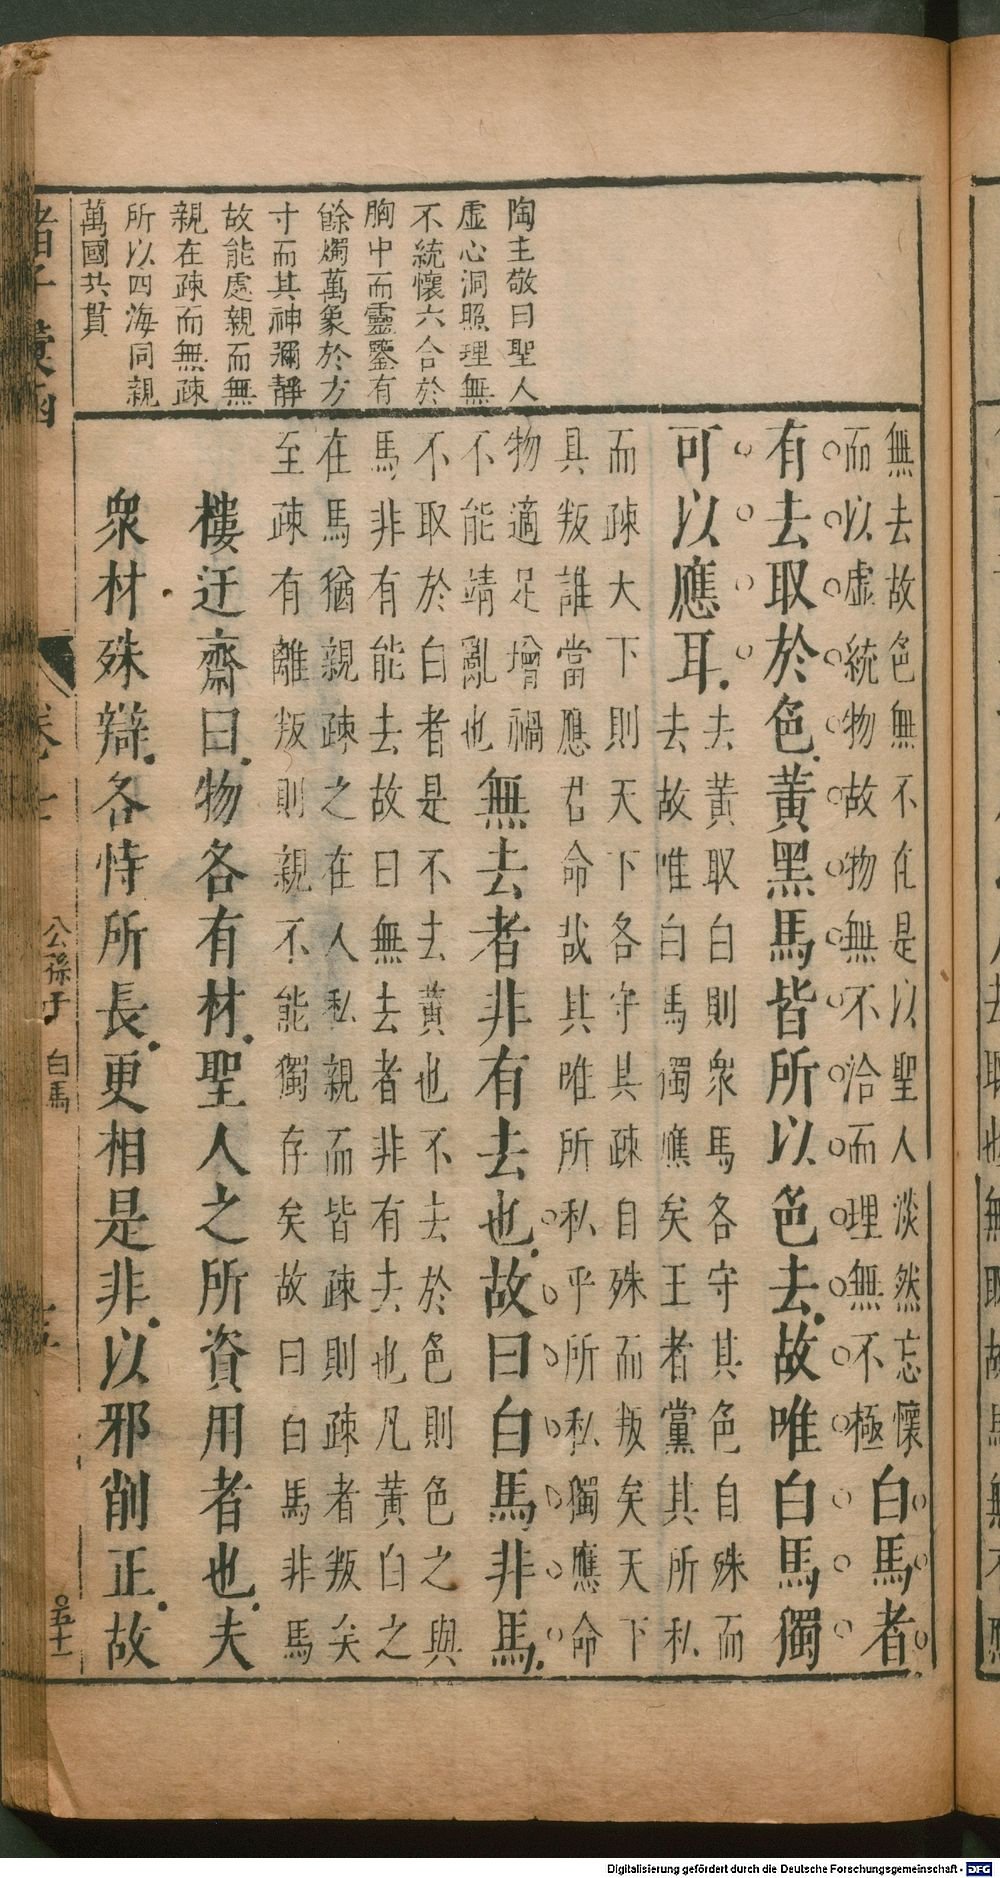 陶主敬曰聖人
虚心洞照理無
不統懷六合於
胸中而靈鑒有
餘燭萬象於方
寸而其神彌靜
故能處親而無
親在疎而無疎
所以四海同親
萬國共貫
無去故色無不在是以聖人淡然忘懷
而以虚統物故物無不洽而理無不極
白馬者
有去取於色黃黑馬皆所以色去故唯白馬獨
可以應耳
去黃取白則衆馬各守其色自殊而
去故唯白馬獨應矣王者黨其所私
而疎大下則天下各守其疎自殊而叛矣天下
具叛誰當應君命哉其唯所私乎所私獨應命
物適足增禍
不能靖亂也
無去者非有去也故曰白馬非馬
不取於白者是不去黃也不去於色則色之與
馬非有能去故曰無去者非有去也凡黃白之
在馬猶親疎之在人私親而皆疎則疎者叛矣
至疎有離叛則親不能獨存矣故曰白馬非馬
樓迂齋曰物各有材聖人之所資用者也夫
衆材殊辯各恃所長更相是非以邪削正故
諸子彙函
公孫子 白馬
五十一
Digitalisierung gefördert durch die Deutsche Forschungsgemeinschaft - DFG